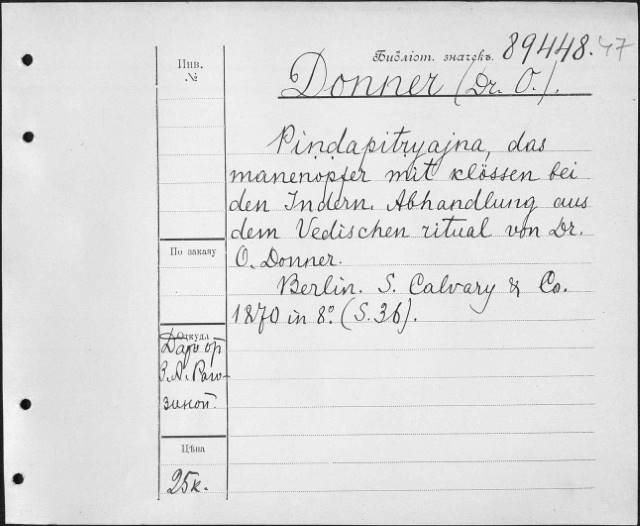 Инв.
№
Библіот. значекъ.
89448.47
Donner (Dr. O.).
Piṇḍapitṛyajna, das
manenopfer mit klössen bei
den Indern. Abhandlung aus
dem Vedischen ritual von Dr.
O. Donner.
Berlin. S. Calvary & Co.
1870 in 8º. (S. 36).
По заказу
Откуда
Даръ от
З. А. Раго-
зиной.
Цѣна
25к.